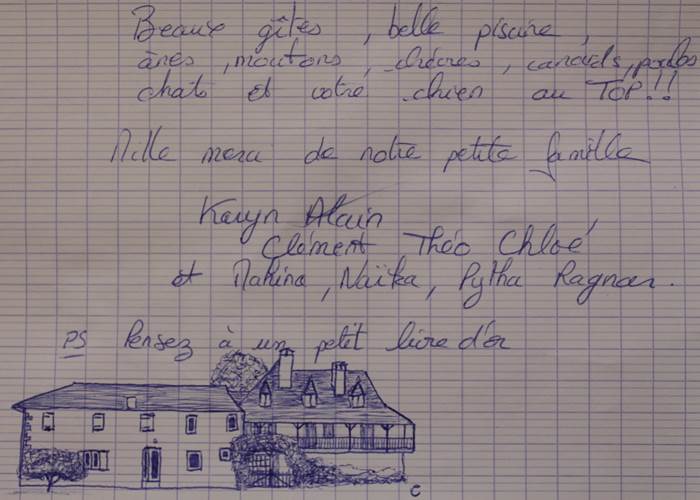 Beaux gîtes, belle piscine,
ânes, moutons, chèvres, canards, poules
chats et votre chien au TOP!!
Mille merci de notre petite famille
Karyn Alain
Clément Théo Chloé
et Mahina, Naïka, Pytha Ragnar.
PS Pensez à un petit livre d'or
C